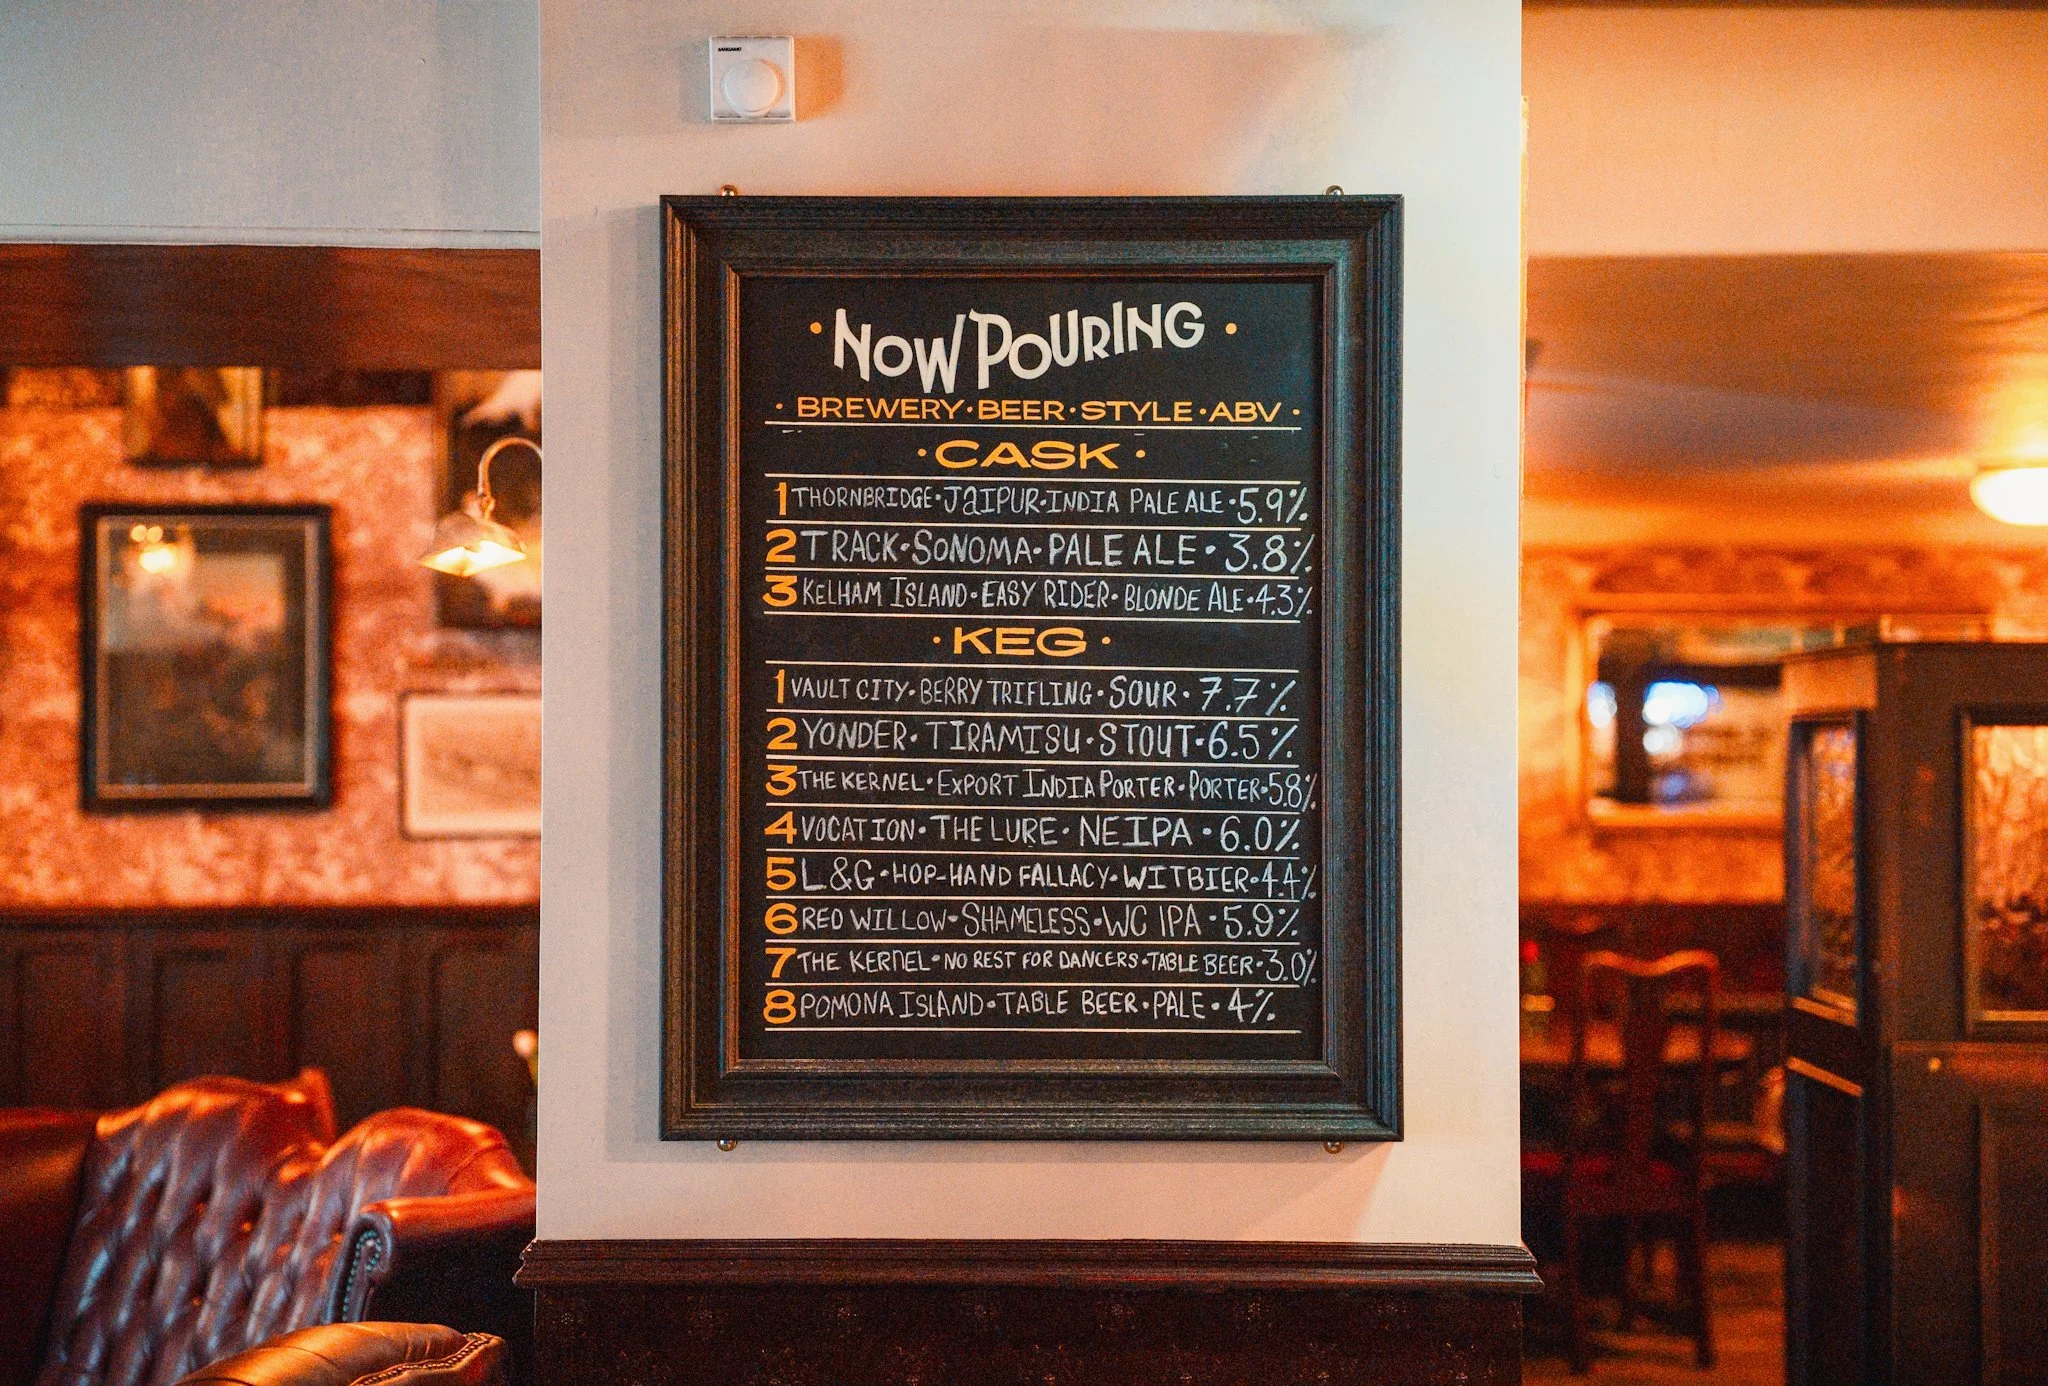 SANGAMO
• NOW POURING •
• BREWERY • BEER • STYLE • ABV •
• CASK •
1 THORNBRIDGE • JAIPUR • INDIA PALE ALE • 5.9%
2 TRACK • SONOMA • PALE ALE • 3.8%
3 KELHAM ISLAND • EASY RIDER • BLONDE ALE • 4.3%
• KEG •
1 VAULT CITY • BERRY TRIFLING • SOUR • 7.7%
2 YONDER • TIRAMISU • STOUT • 6.5%
3 THE KERNEL • EXPORT INDIA PORTER • PORTER • 5.8%
4 VOCATION • THE LURE • NEIPA • 6.0%
5 L&G • HOP-HAND FALLACY • WITBIER • 4.4%
6 RED WILLOW • SHAMELESS • WC IPA • 5.9%
7 THE KERNEL • NO REST FOR DANCERS • TABLE BEER • 3.0%
8 POMONA ISLAND • TABLE BEER • PALE • 4%